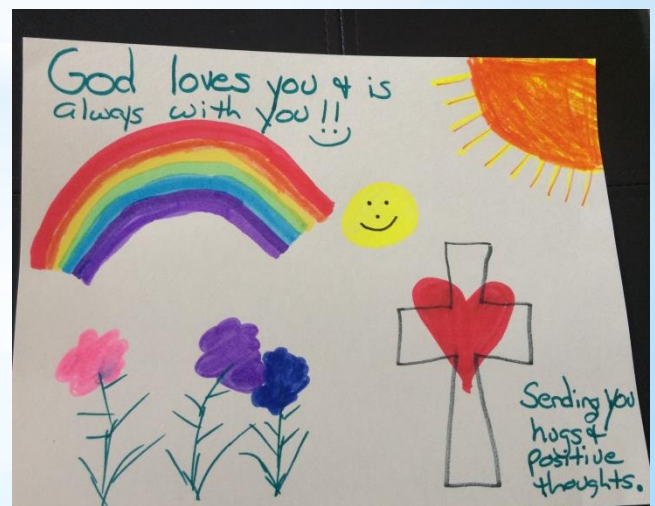 God loves you & is
always with you!!
Sending you
hugs &
positive
thoughts.